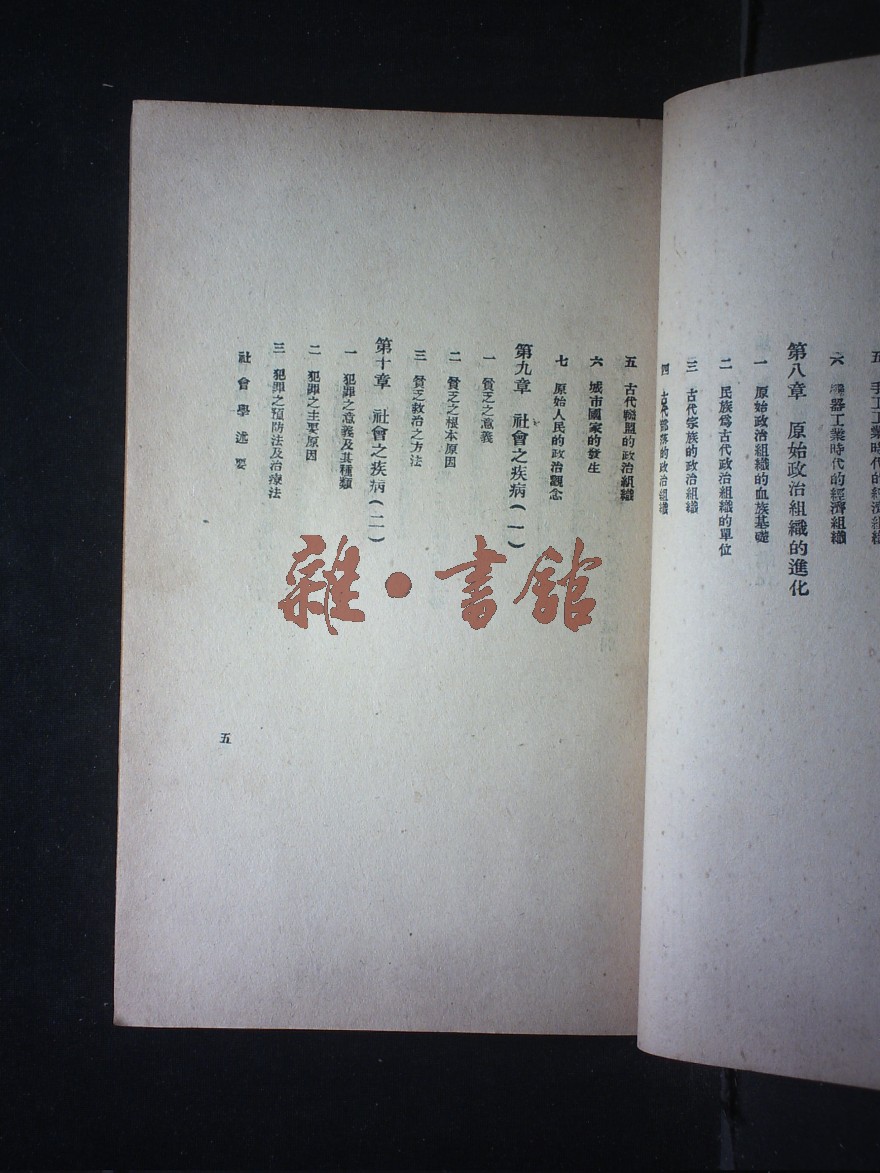 五 手工工業時代的經濟組織
六 機器工業時代的經濟組織
第八章 原始政治組織的進化
一 原始政治組織的血族基礎
二 民族爲古代政治組織的單位
三 古代宗族的政治組織
四 古代部落的政治組織
五 古代聯盟的政治組織
六 城市國家的發生
七 原始人民的政治觀念
第九章 社會之疾病(一)
一 貧乏之意義
二 貧乏之根本原因
三 貧乏救治之方法
第十章 社會之疾病(二)
一 犯罪之意義及其種類
二 犯罪之主要原因
三 犯罪之預防法及治療法
社會學述要
五
雜·書館